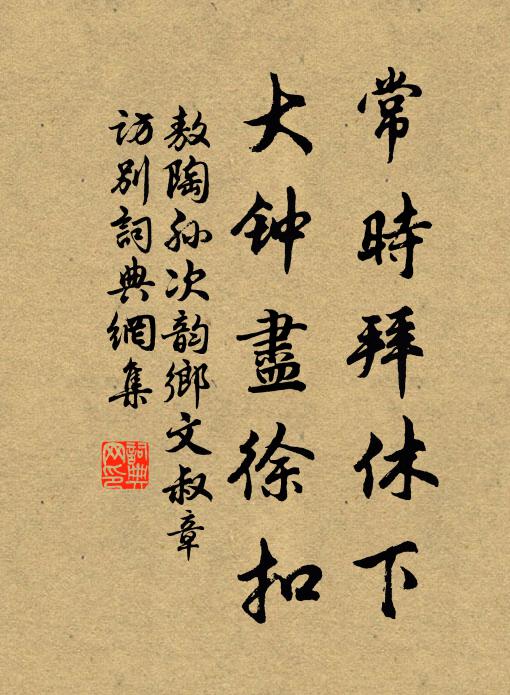 常時拜休下
大钟盡徐扣
敖陶孙次韵鄉文叔章
訪别詞典網集
詞典網印